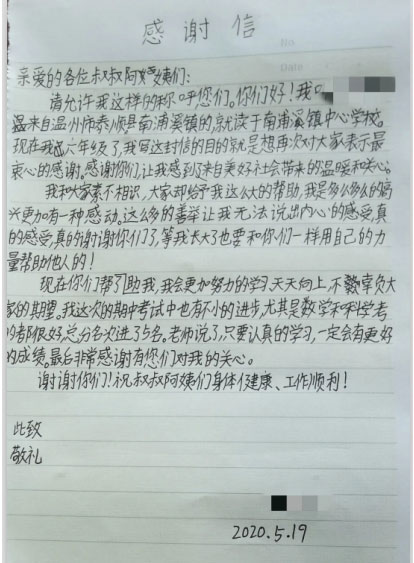 感谢信
No
Date
亲爱的各位叔叔阿姨们:
请允许我这样的称呼您们。你们好!我
温来自温州市泰顺县南浦溪镇的,就读于南浦溪镇中心学校。
现在我六年级了,我写这封信的目的就是想再次对大家表示最
衷心的感谢。感谢你们,让我感到了来自美好社会带来的温暖和关心。
我和大家素不相识,大家却给予我这么大的帮助,我是多么多么的高
兴更加有一种感动。这么多的善举让我无法说出内心的感受,真
的感受,真的谢谢你们了,等我长大了也要和你们一样用自己的力
量帮助他人的!
现在你们帮助我,我会更加努力的学习,天天向上,不辜负大
家的期望。我这次的期中考试中也有不小的进步,尤其是数学和科学考
的都很好,总分名次进了5名。老师说了,只要认真的学习,一定会有更好
的成绩。最后非常感谢有您们对我的关心。
谢谢你们!祝叔叔阿姨们身体健康、工作顺利!
此致
敬礼
2020.5.19